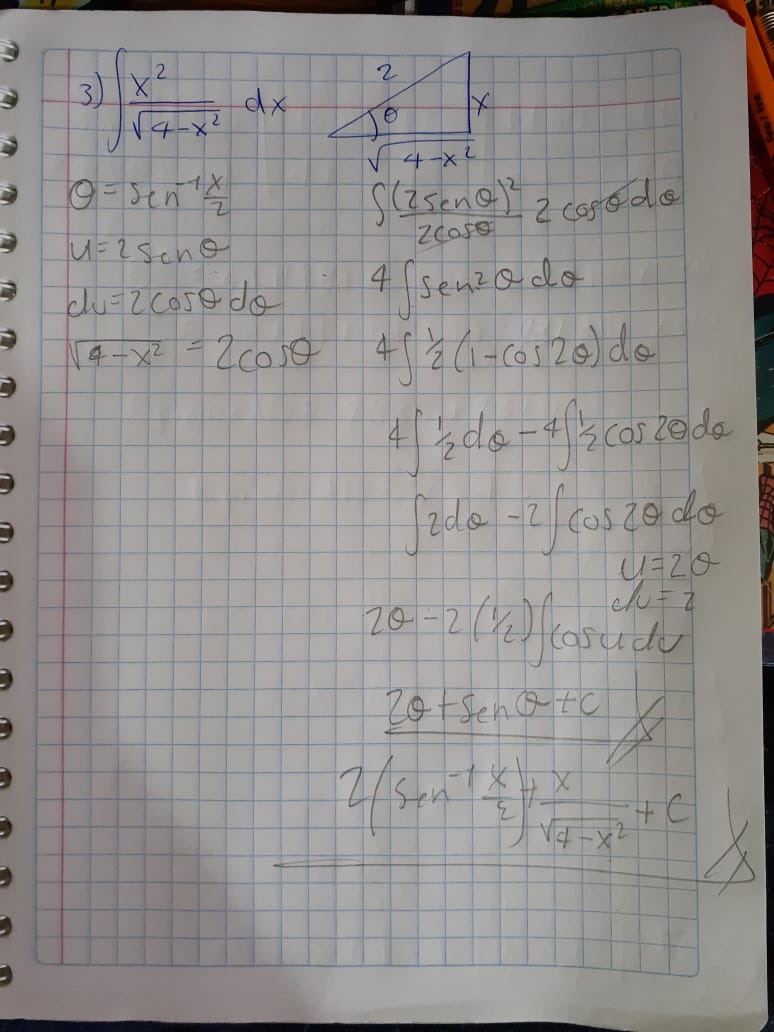 3) ∫ x² / √(4-x²) dx
2
θ
x
√(4-x²)
θ = sen⁻¹ x/2
u = 2 sen θ
du = 2 cos θ dθ
√(4-x²) = 2 cos θ
∫ (2 sen θ)² / 2 cos θ 2 cos θ dθ
4 ∫ sen² θ dθ
4 ∫ ½ (1 - cos 2θ) dθ
4 ∫ ½ dθ - 4 ∫ ½ cos 2θ dθ
∫ 2 dθ - 2 ∫ cos 2θ dθ
u = 2θ
du = 2
2θ - 2 (½) ∫ cos u du
2θ + sen θ + c
2 (sen⁻¹ x/2) + x / √(4-x²) + c